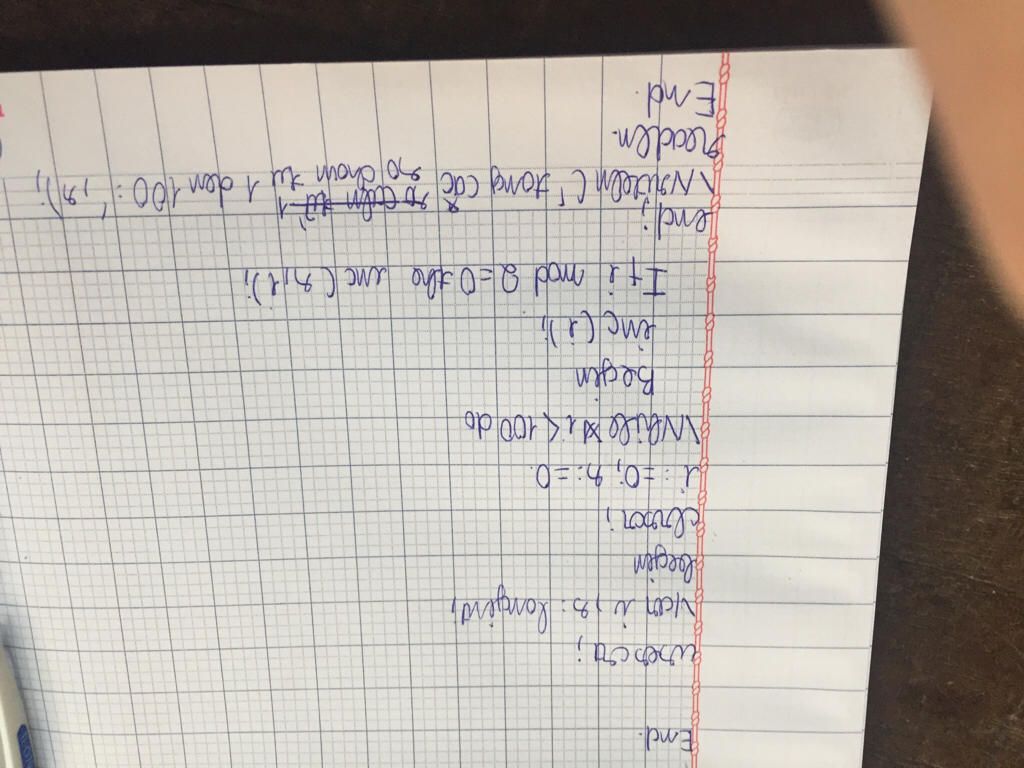 End.
uses crt;
var i, s: longint;
begin
clrscr;
i:=0; s:=0
While i<100 do
Begin
inc(i);
If i mod 2=0 the inc(s,i);
end;
Writeln('tong cac so chan tu 1 den 100: ',s);
readln.
End.